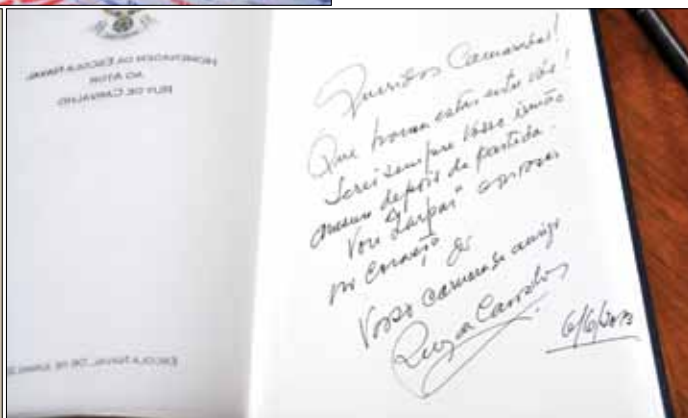 HOMENAGEM DA ESCOLA NAVAL
AO ATOR
RUY DE CARVALHO
ESCOLA NAVAL, DE DE JUNHO
Queridos Camaradas!
Que honra estar entre vós!
Serei sempre vosso irmão
mesmo depois da partida.
Vou "Zarpar" convosco
no coração do
Vosso camarada amigo
Ruy de Carvalho
6/6/2013